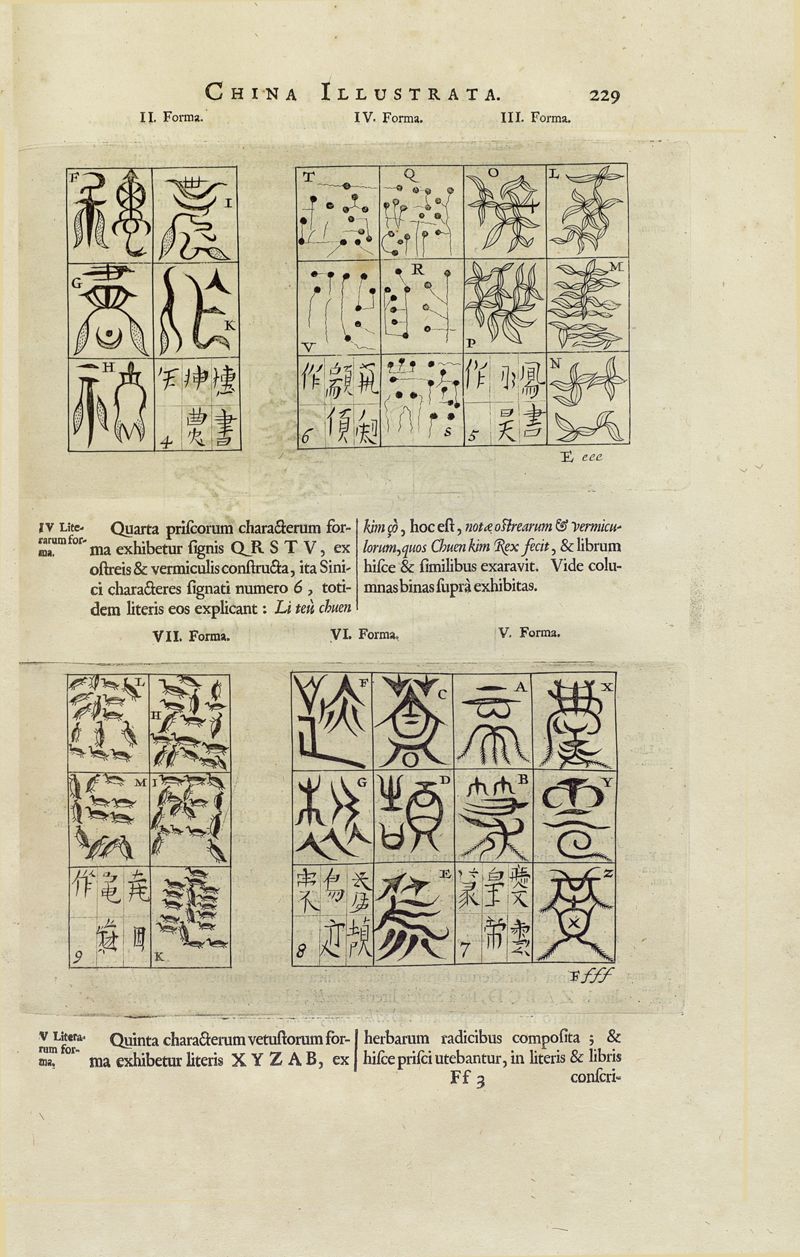 CHINA ILLUSTRATA. 229
II. Forma. IV. Forma. III. Forma.
F I T Q O L
G K V R P M
H S N
4 6 5
作 書
E eee
IV Lite-
rarum for-
ma.
Quarta priſcorum characterum for-
ma exhibetur ſignis Q R S T V, ex
oſtreis & vermiculis conſtructa, ita Sini-
ci characteres ſignati numero 6, toti-
dem literis eos explicant: Li teú chuen
kim ço, hoc eſt, notæ oſtrearum & vermicu-
lorum, quos Chuen kim Rex fecit, & librum
hiſce & ſimilibus exaravit. Vide colu-
mnas binas ſuprà exhibitas.
VII. Forma. VI. Forma. V. Forma.
L H F C A X
M I G D B Y
K E Z
9 8 7
作
F fff
V Litera-
rum for-
ma.
Quinta characterum vetuſtorum for-
ma exhibetur literis X Y Z A B, ex
herbarum radicibus compoſita; &
hiſce priſci utebantur, in literis & libris
Ff 3 conſcri-